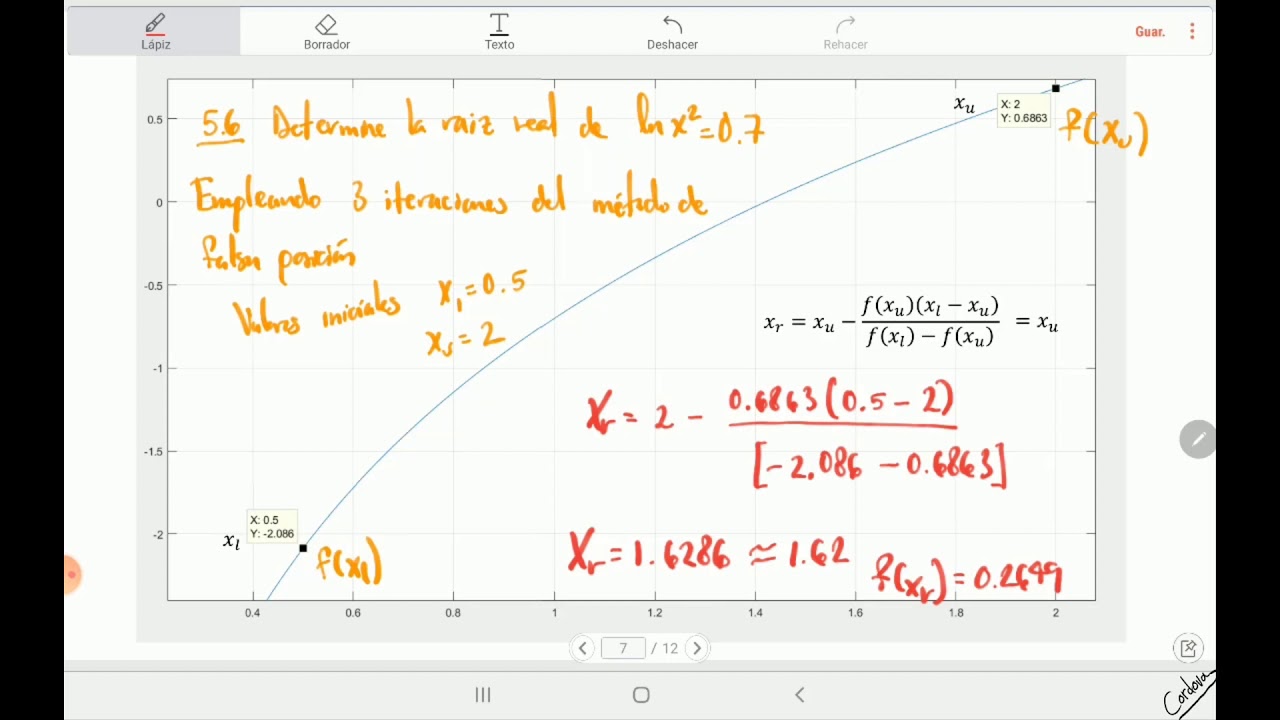 Lápiz
Borrador
Texto
Deshacer
Rehacer
Guar.
5.6 Determine la raiz real de ln x² = 0.7
Empleando 3 iteraciones del método de
falsa posición
Valores iniciales x_l = 0.5
x_u = 2
x_u
X: 2
Y: 0.6863
f(x_u)
x_r = x_u − f(x_u)(x_l − x_u) / f(x_l) − f(x_u) = x_u
x_r = 2 − 0.6863(0.5 − 2) / [−2.086 − 0.6863]
x_l
X: 0.5
Y: -2.086
f(x_l)
x_r = 1.6286 ≈ 1.62
f(x_r) = 0.2649
0.5
0
-0.5
-1
-1.5
-2
0.4 0.6 0.8 1 1.2 1.4 1.6 1.8 2
7 / 12
Cordova